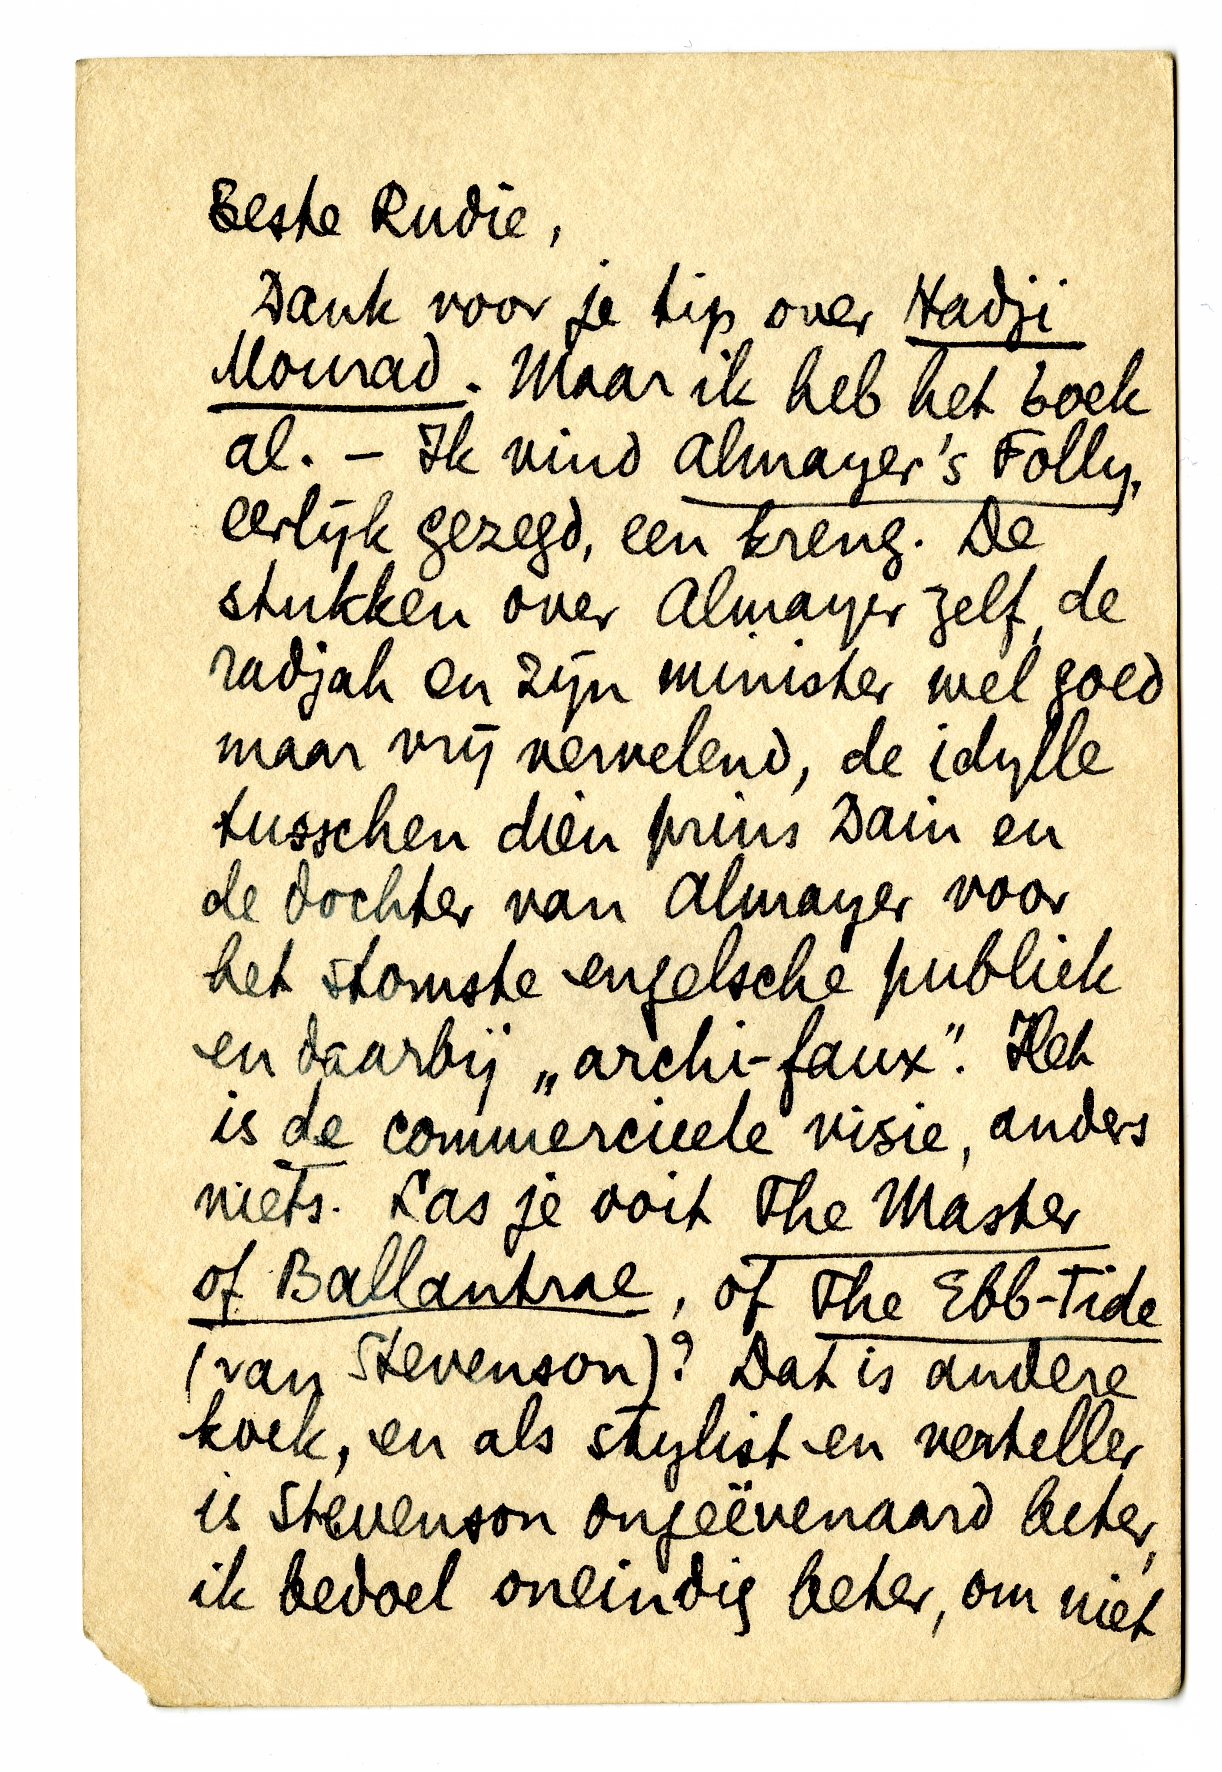 Beste Rudie,
Dank voor je tip over Hadji
Mourad. Maar ik heb het boek
al. – Ik vind Almayer's Folly,
eerlijk gezegd, een kreng. De
stukken over Almayer zelf, de
radjah en zijn minister wel goed
maar vrij vervelend, de idylle
tusschen dien prins Dain en
de dochter van Almayer voor
het stomste engelsche publiek
en daarbij „archi-faux”. Het
is de commercieele visie, anders
niets. Las je ooit The Master
of Ballantrae, of The Ebb-Tide
(van Stevenson)? Dat is andere
koek, en als stylist en verteller
is Stevenson ongeëvenaard beter,
ik bedoel oneindig beter, om niet